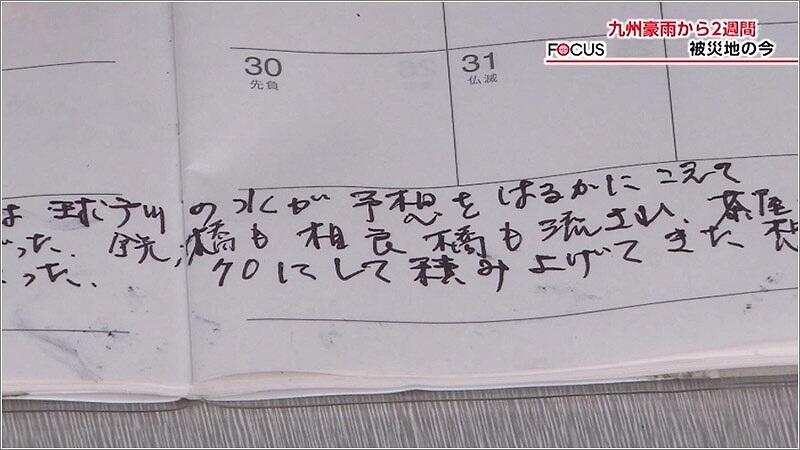 九州豪雨から2週間
FOCUS 被災地の今
30 31
先負 仏滅
は 球广川の水が予想をはるかにこえて
った. 橋も相良橋も流され、茶屋
った. にして積み上げてきた